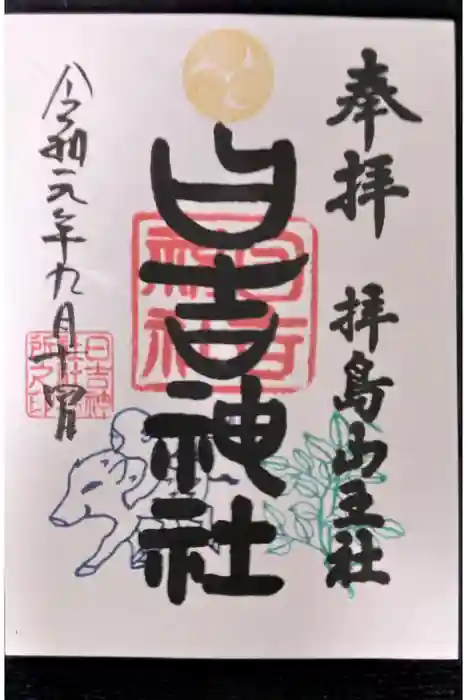 奉拝 拝島山王社
日吉神社
日吉神社
令和元年九月十四日
日吉神社社務所之印